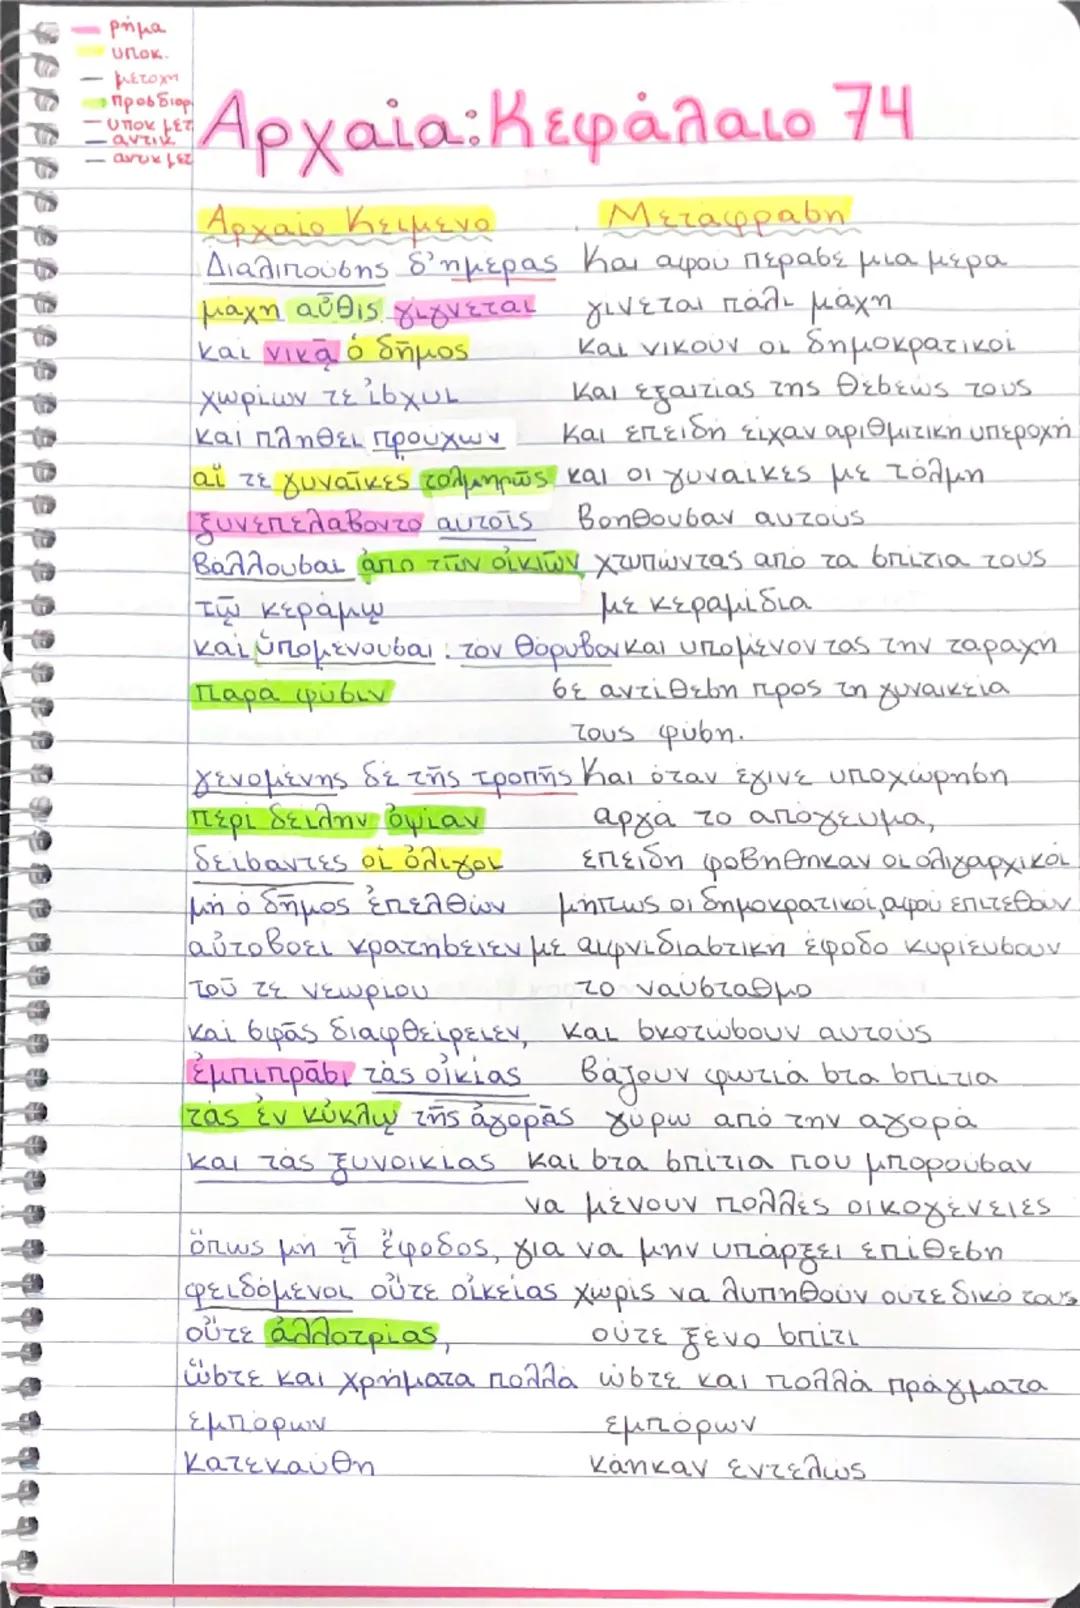 ρήμα
υποκ.
μετοχη
προσδιορ
υποκ μετ
αντικ
αντικ μετ
Αρχαία: Κεφάλαιο 74
Αρχαίο Κείμενο Μετάφραση
Διαλιπούσης δ' ημέρας Και αφού πέρασε μια μέρα
μάχη αὖθις γίγνεται γίνεται πάλι μάχη
και νικᾷ ὁ δῆμος και νικούν οι δημοκρατικοί
χωρίων τε ἰσχύι και εξαιτίας της θέσεώς τους
και πλήθει προύχων και επειδή είχαν αριθμιτική υπεροχή
αἵ τε γυναῖκες τολμηρῶς και οι γυναίκες με τόλμη
ξυνεπελάβοντο αυτοῖς βοηθούσαν αυτούς
βάλλουσαι ἀπό τῶν οἰκιῶν χτυπώντας από τα σπίτια τους
τῷ κεράμῳ με κεραμίδια
και ὑπομένουσαι τον θόρυβον και υπομένοντας την ταραχή
παρά φύσιν σε αντίθεση προς τη γυναικεία
τους φύση.
γενομένης δέ τῆς τροπῆς Και όταν έγινε υποχώρηση
περί δείλην ὀψίαν αργά το απόγευμα,
δείσαντες οἱ ὀλίγοι επειδή φοβήθηκαν οι ολιγαρχικοί
μή ὁ δῆμος ἐπελθών μήπως οι δημοκρατικοί, αφού επιτεθούν
αὐτοβοεί κρατήσειεν με αιφνιδιαστική έφοδο κυριεύσουν
τοῦ τε νεωρίου το ναύσταθμο
καί σφᾶς διαφθείρειεν, και σκοτώσουν αυτούς
ἐμπιπρᾶσι τάς οἰκίας βάζουν φωτιά στα σπίτια
τάς ἐν κύκλῳ τῆς ἀγορᾶς γύρω από την αγορά
και τάς ξυνοικίας και στα σπίτια που μπορούσαν
να μένουν πολλές οικογένειες
ὅπως μή ᾖ ἔφοδος, για να μην υπάρξει επίθεση
φειδόμενοι οὔτε οἰκείας χωρίς να λυπηθούν ούτε δικό τους
οὔτε ἀλλοτρίας, ούτε ξένο σπίτι
ὥστε και χρήματα πολλά ώστε και πολλά πράγματα
ἐμπόρων εμπόρων
κατεκαύθη κάηκαν εντελώς